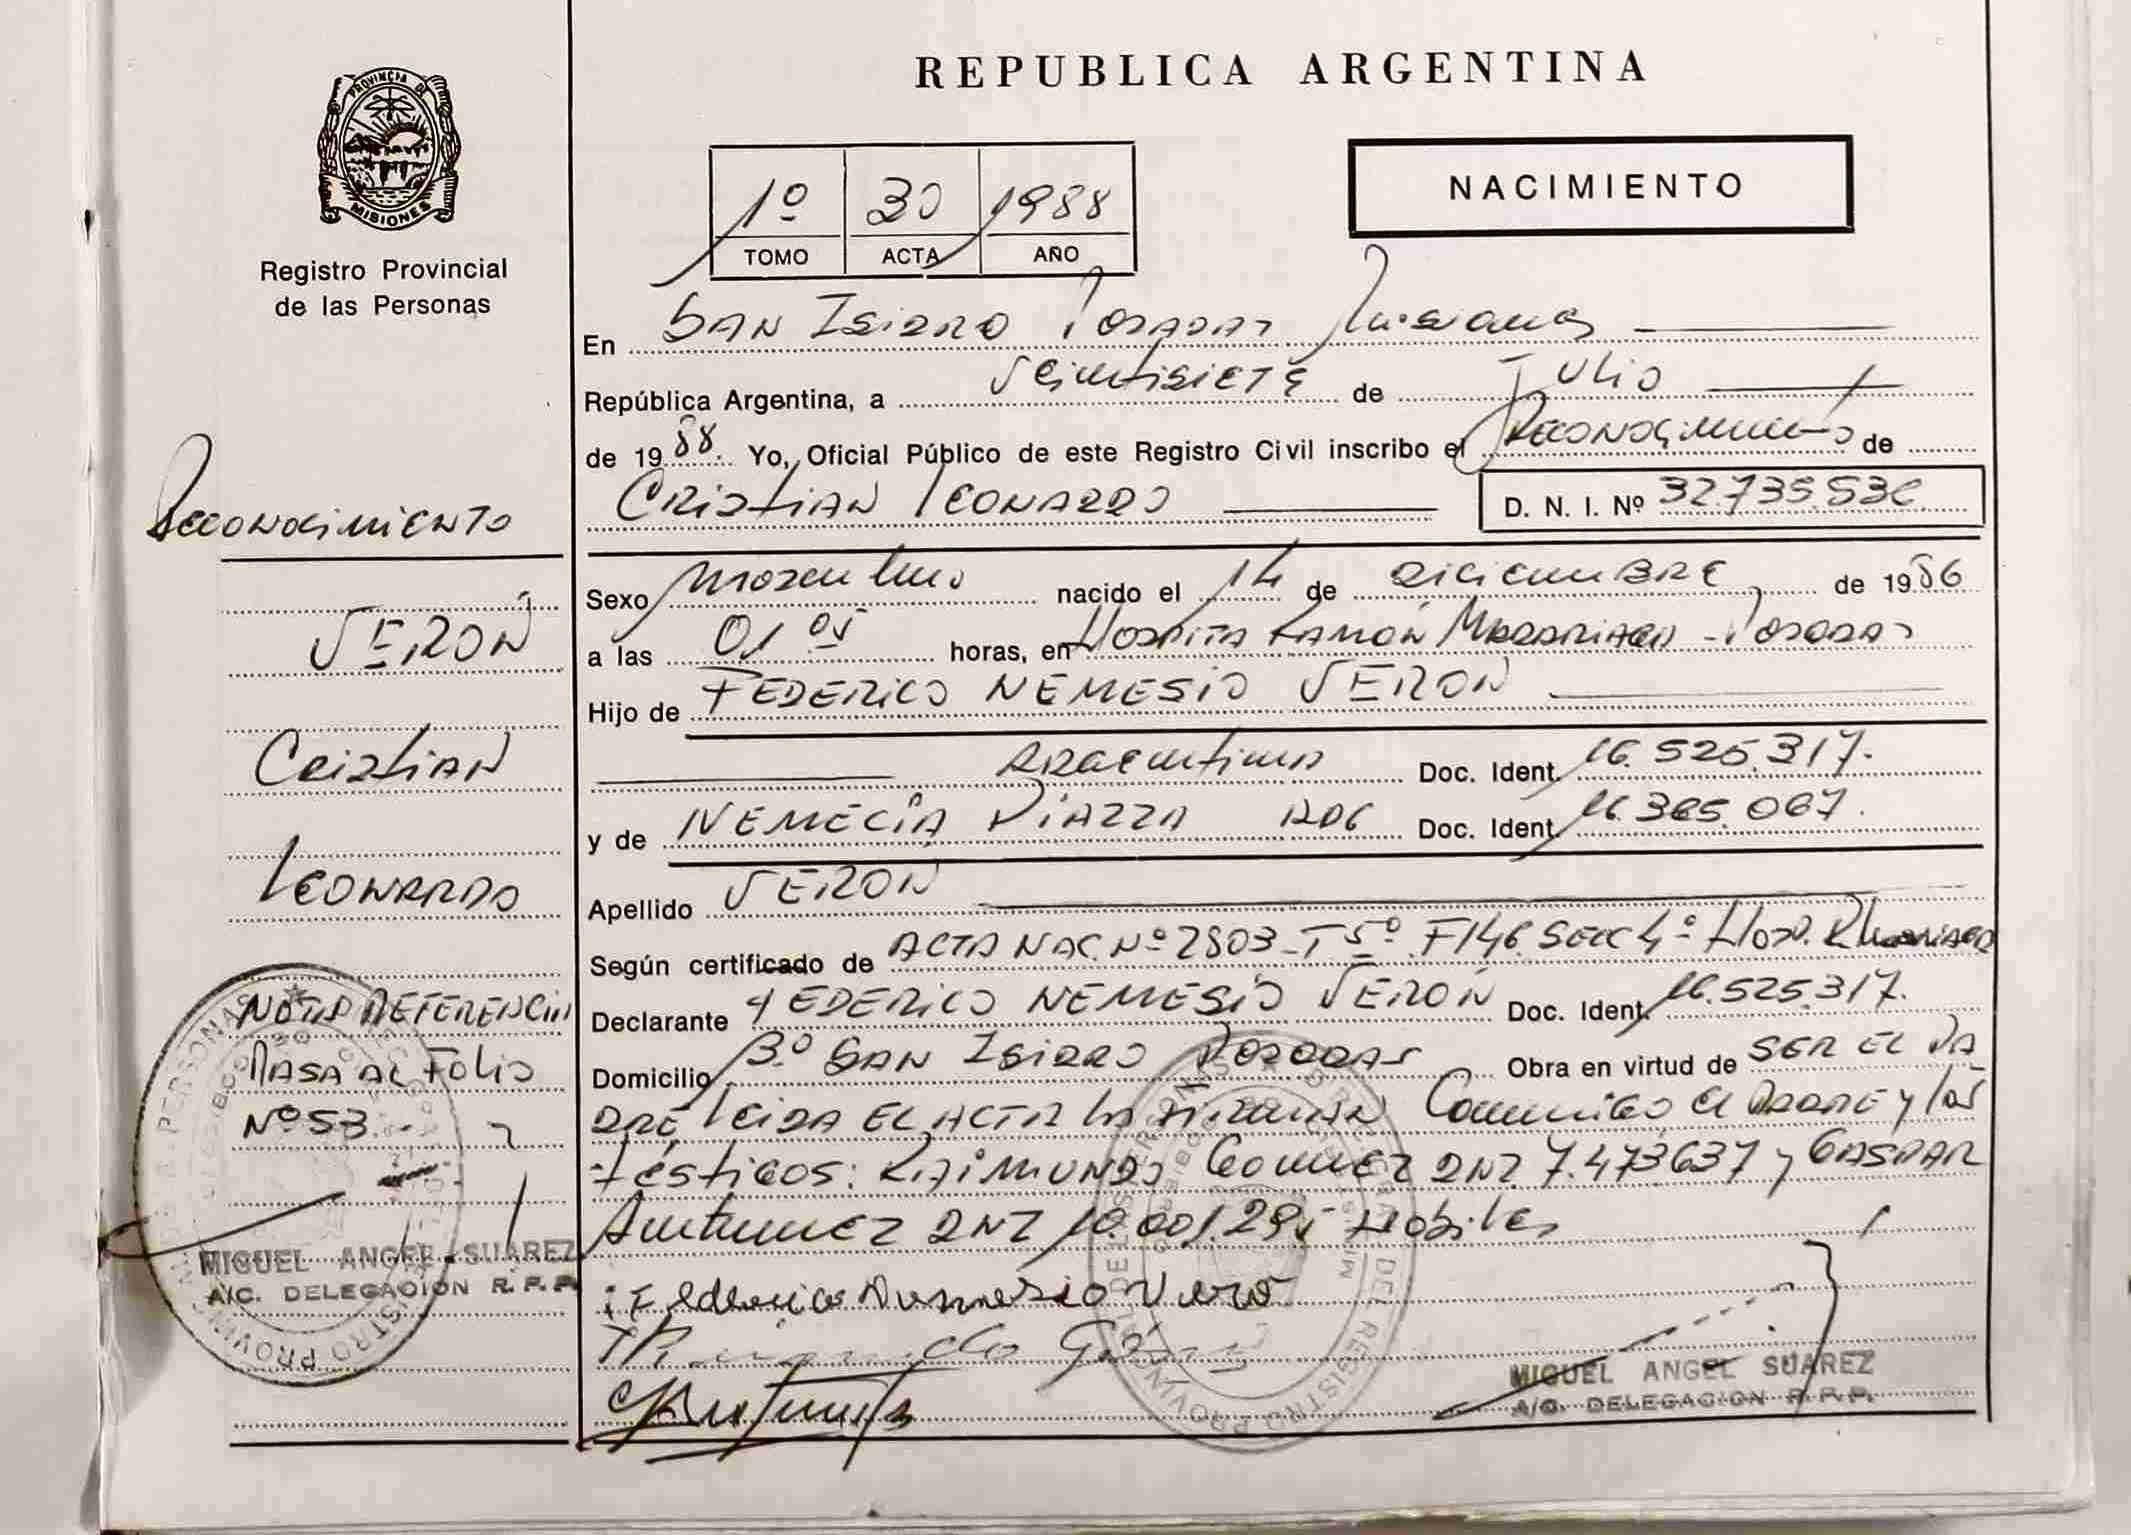 REPUBLICA ARGENTINA
PROVINCIA DE
MISIONES
Registro Provincial
de las Personas
1º 30 1988
TOMO ACTA AÑO
NACIMIENTO
En SAN ISIDRO POSADAS Misiones
República Argentina, a Veintisiete de Julio
de 1988. Yo, Oficial Público de este Registro Civil inscribo el Reconocimiento de
CRISTIAN LEONARDO D. N. I. Nº 32.735.536
Sexo Masculino nacido el 14 de diciembre de 1986
a las 01 05 horas, en Hospita Ramón Madariaga - Posadas
Hijo de FEDERICO NEMESIO VERON
Argentino Doc. Ident. 16.525.317.
y de NEMECIA PIAZZA ARG Doc. Ident. 16.365.067.
Apellido VERON
Según certificado de ACTA NAC. Nº 2803-T 5º F146 Secc 4º Hosp. R Madariaga
Declarante FEDERICO NEMESIO VERÓN Doc. Ident. 16.525.317.
Domicilio Bº SAN ISIDRO POSADAS Obra en virtud de SER EL PA
DRE LEIDA EL ACTA LA FIRMAN Conmigo el PADRE y los
téstigos: RAIMUNDO Gomez DNI 7.473637 y GASPAR
Antunez DNI 10.001.295 Hábiles
Federico Nemesio Vero
MIGUEL ANGEL SUAREZ
A/C. DELEGACION R. P. P.
Reconocimiento
VERÓN
Cristian
LEONARDO
NOTA REFERENCIA
PASA AL FOLIO
Nº 53.-
MIGUEL ANGEL SUAREZ
A/C. DELEGACION R. P. P.